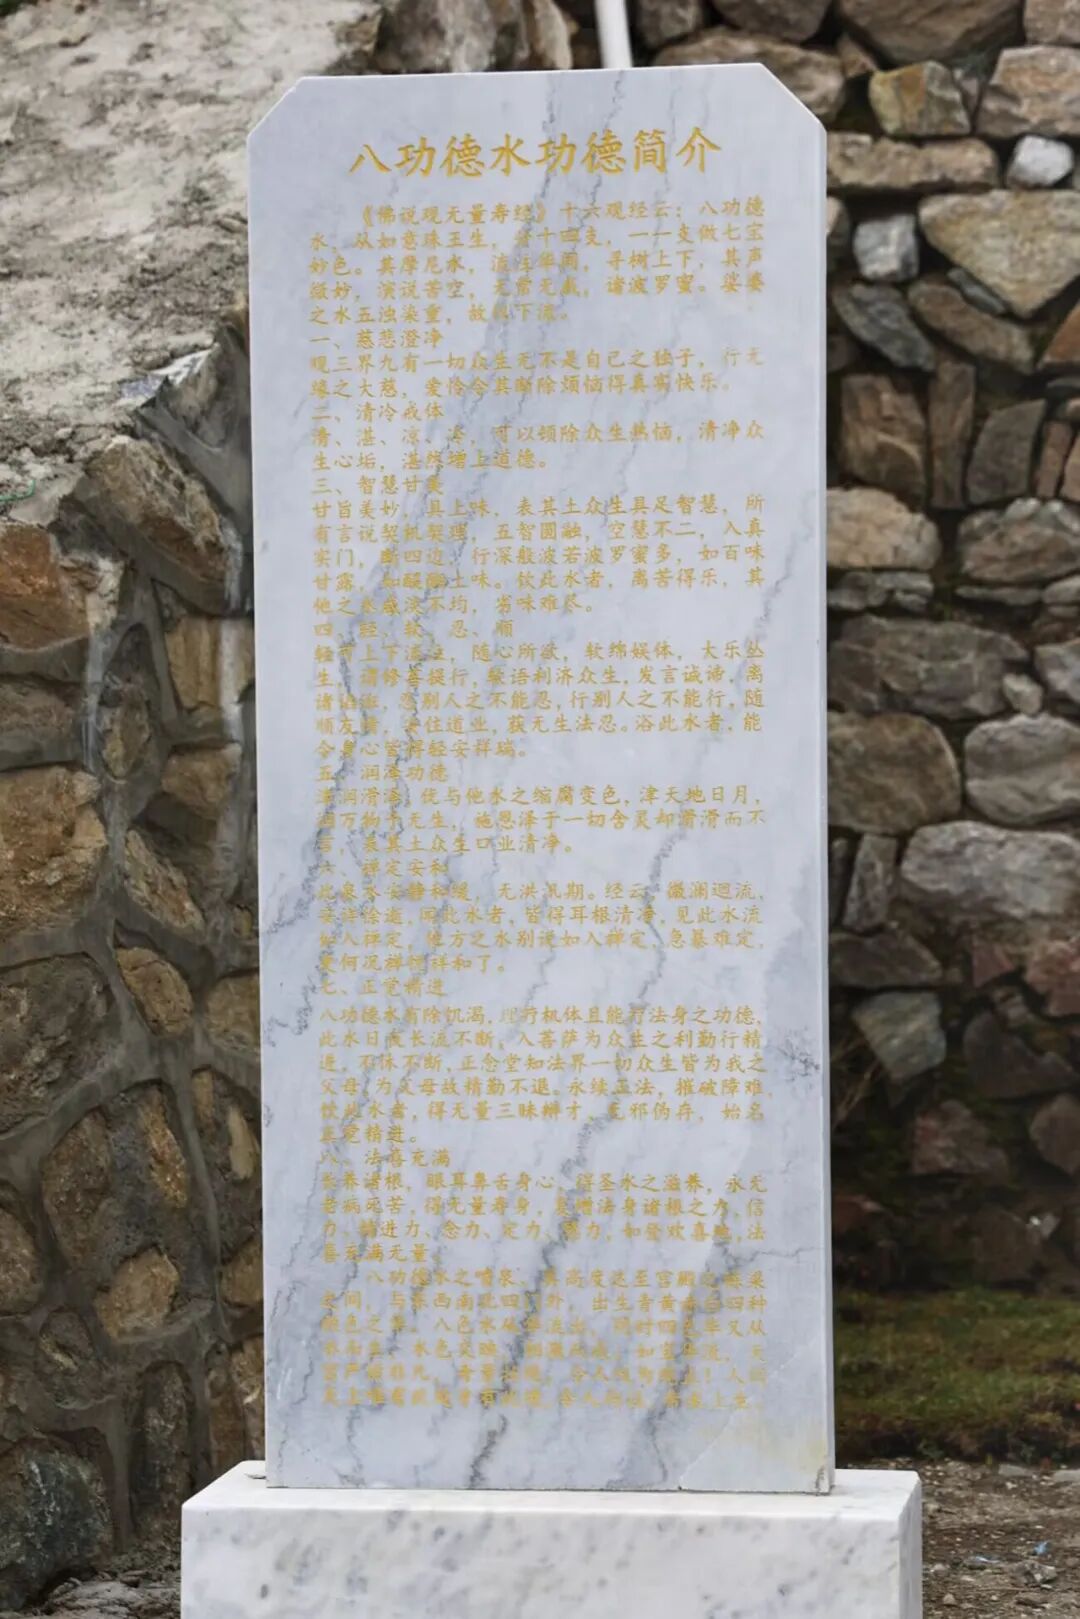 八功德水功德简介
《佛说观无量寿经》十六观经云：八功德
水、从如意珠王生，分十四支，一一支做七宝
妙色。其摩尼水，流注华间，寻树上下，其声
微妙，演说苦空，无常无我，诸波罗蜜。娑婆
之水五浊染重，故以下流。
一、慈悲澄净
观三界九有一切众生无不是自己之独子，行无
缘之大慈，爱怜令其断除烦恼得真实快乐。
二、清冷戒体
清、湛、凉、冷，可以顿除众生热恼，清净众
生心垢，湛然增上道德。
三、智慧甘美
甘旨美妙，具上味，表其土众生具足智慧，所
有言说契机契理，五智圆融，空慧不二，入真
实门，断四边，行深般波若波罗蜜多，如百味
甘露，如醍醐上味。饮此水者，离苦得乐，其
他之水咸淡不均，劣味难尽。
四、轻、软、忍、顺
轻可上下流注，随心所欲，软绵娱体，大乐丛
生，谓修善提行，软语利济众生，发言诚谛，离
诸谄诳，忍别人之不能忍，行别人之不能行，随
顺友情，安住道业，获无生法忍。浴此水者，能
令身心皆得轻安祥瑞。
五、润泽功德
润滑泽，优与他水之缩腐变色，津天地日月，
润万物于无生，施恩泽于一切含灵却滑滑而不
言，表其土众生口业清净。
六、禅定安和
此泉水安静和缓，无洪汛期。经云：徽澜迴流，
安详徐逝，闻此水者，皆得耳根清净，见此水流
如入禅定，他方之水别说如入禅定，急暴难定，
更何况禅悦祥和了。
七、正觉精进
八功德水有除饥渴，理疗机体且能疗法身之功德，
此水日夜长流不断，入菩萨为众生之利勤行精
进，不休不断，正念堂知法界一切众生皆为我之
父母，为父母故精勤不退。永续正法，摧破障难，
饮此水者，得无量三昧辩才，无邪伪存，始名
正觉精进。
八、法喜充满
长养诸根，眼耳鼻舌身心，得圣水之滋养，永无
老病死苦，得无量寿身，复增法身诸根之力、信
力、精进力、念力、定力、慧力，如登欢喜地，法
喜充满无量。
八功德水之喷泉，其高度达至宫殿之
之间，与东西南北四门外，出生青黄赤白四种
颜色之华。八色水从华流出，同时四色华又从